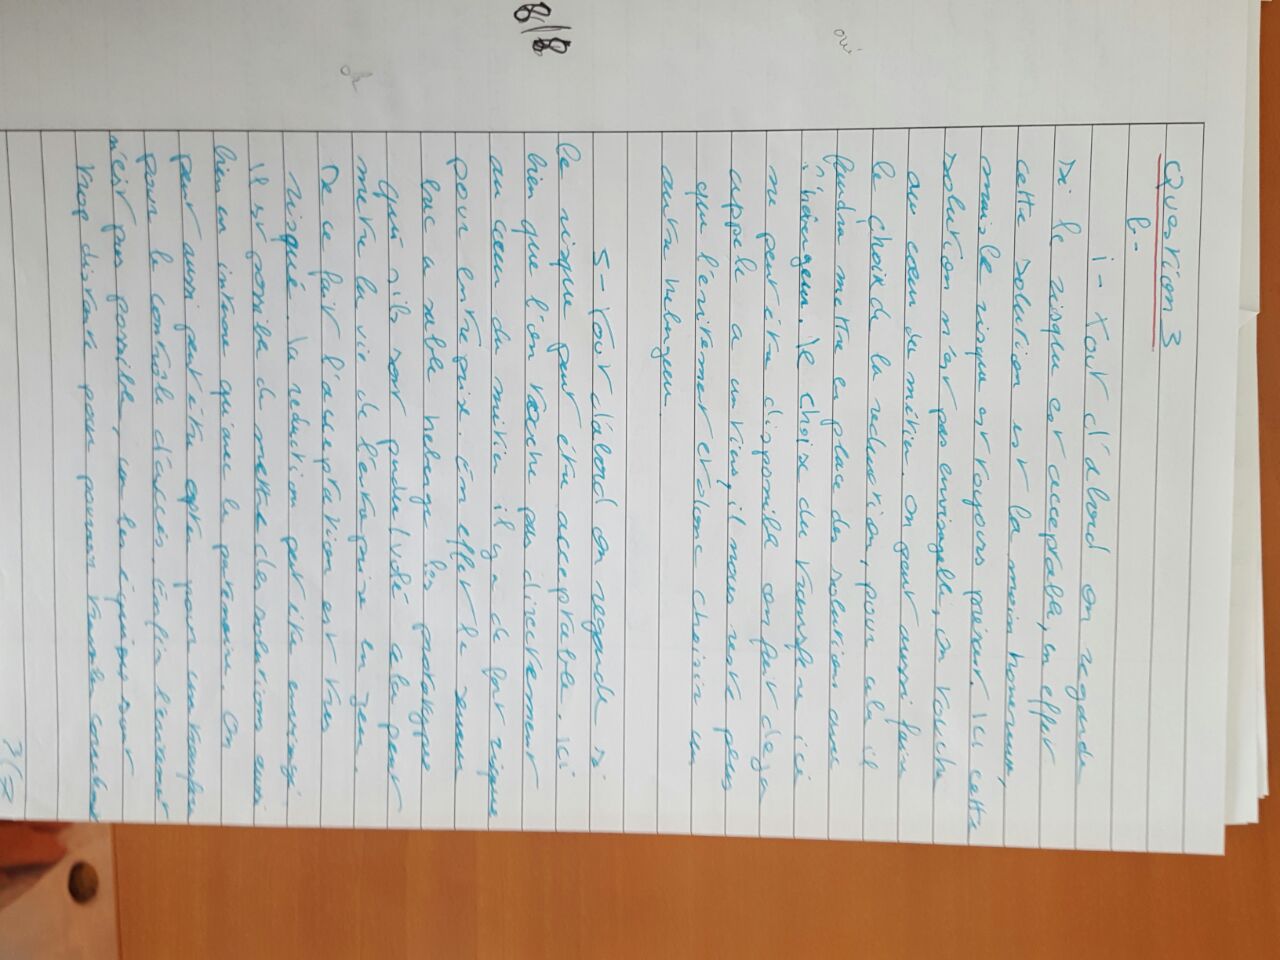 Question 3
b-
i- tout d'abord on regarde
si le risque est acceptable, en effet
cette solution est la moin honereuse,
mais le risque est toujours présent. Ici cette
solution n'est pas envisagable, on touche
au cœur du métier. On peut aussi faire
le choix de la reduction, pour cela il
faudra mettre en place des solutions avec
l'hébergeur. le choix du transfere ici
ne peut être disponible on fait deja
appele a un tiers, il nous reste plus
que l'evitement et donc choisir un
autre hebergeur.
oui
5- tout d'abord on regarde si
le risque peut être acceptable. ici
bien que l'on touche pas directement
au cœur du métier il y a de fort risque
pour entreprise. En effet le
bac a sable heberge les prototypes
qui s'ils sont perdu/volé cela peut
metre la vie de l'entreprise en jeu.
De ce fait l'acceptation est tres
risqué. la reduction peut être envisagé
Il est possible de mettre des solutions aussi
bien en interne qu'avec le partenaire. On
peut aussi peut être opter pour un transfere
pour le contrôle d'accès. Enfin l'evitement
n'est pas possible, car les équipes sont
trop distante pour pouvoir travailler correctement
8/8
ok
3/7